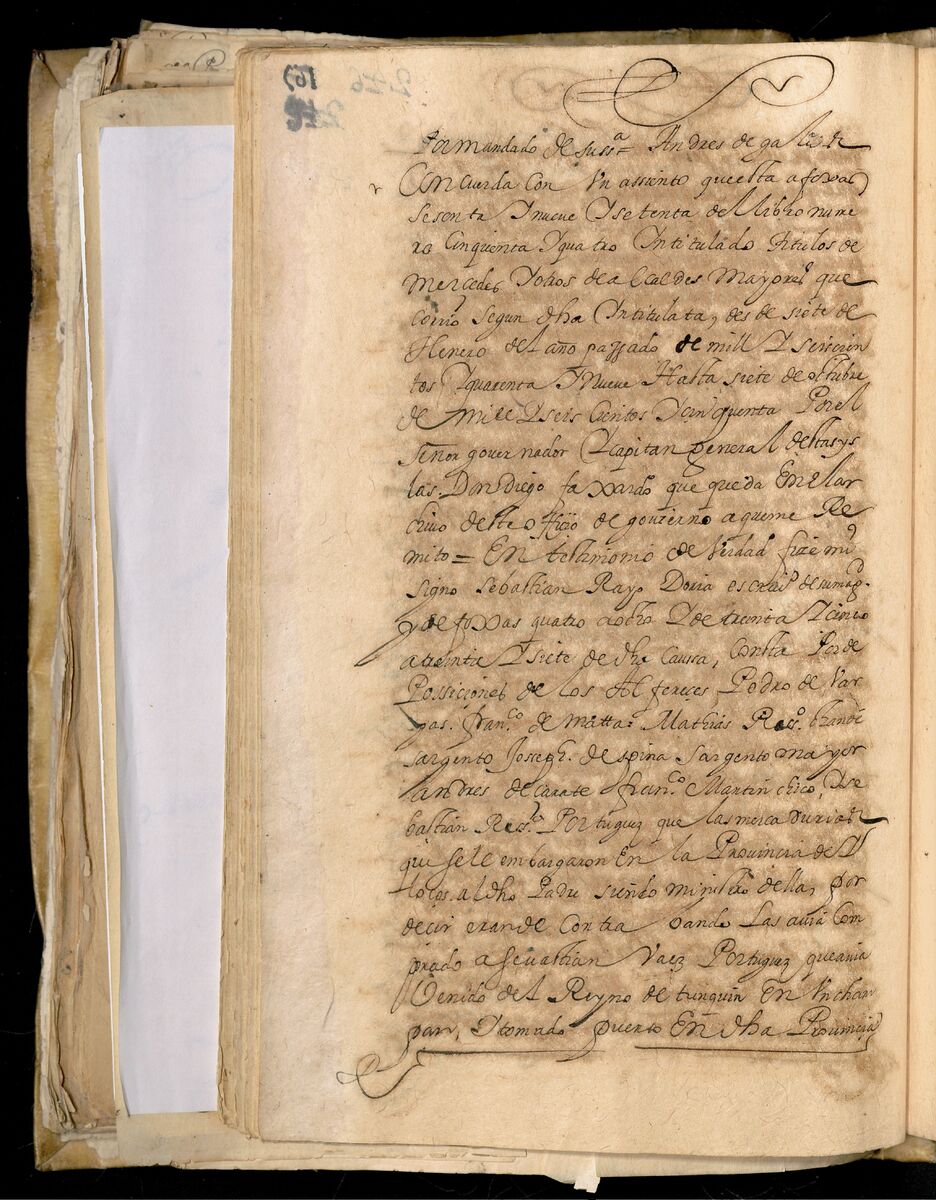 Por mandado de su ssª = Andres de
Concuerda con Vn assiento que esta a foxas
Sesenta Y nueve Y setenta del libro nume
ro Cinquenta Y quatro Intitulado titulos de
Mercedes Y otros de alcaldes Mayores que
corrio Segun dha Intitulata, desde siete de
Henero del año passado de mill Y seiscien
tos Y quarenta Y Nueve Hasta siete de octubre
de Mill Y seis Cientos Y cinquenta Por el
Señor governador Y capitan general destas ys
las Don diego faxardo que queda En el ar
chivo deste officio de govierno a que me Re
mito = En testimonio de Verdad fize mi
signo Sebastian Rayo Doria escrivº de su magd.
y de foxas quatro a ocho Y de treinta Y cinco
a treinta Y siete de dha Caussa, Consta Por de
Possiciones de los Alfereces Pedro de Var
gas. franco de Matta= Mathias
sargento Joseph. de spina Sargento mayor
Andres de carate franco Martin chico, Y se
bastian Portuguez que las mercadurias
que se le embargaron En la Provincia de Y
locos. al dho Padre siendo ministro della, por
decir eran de Contra vando Las avia Com
prado a Sevastian Vaez Portuguez que avia
Venido del Reyno de tunquin En Vn cham
pan, Y tomado puerto En dha Provincia